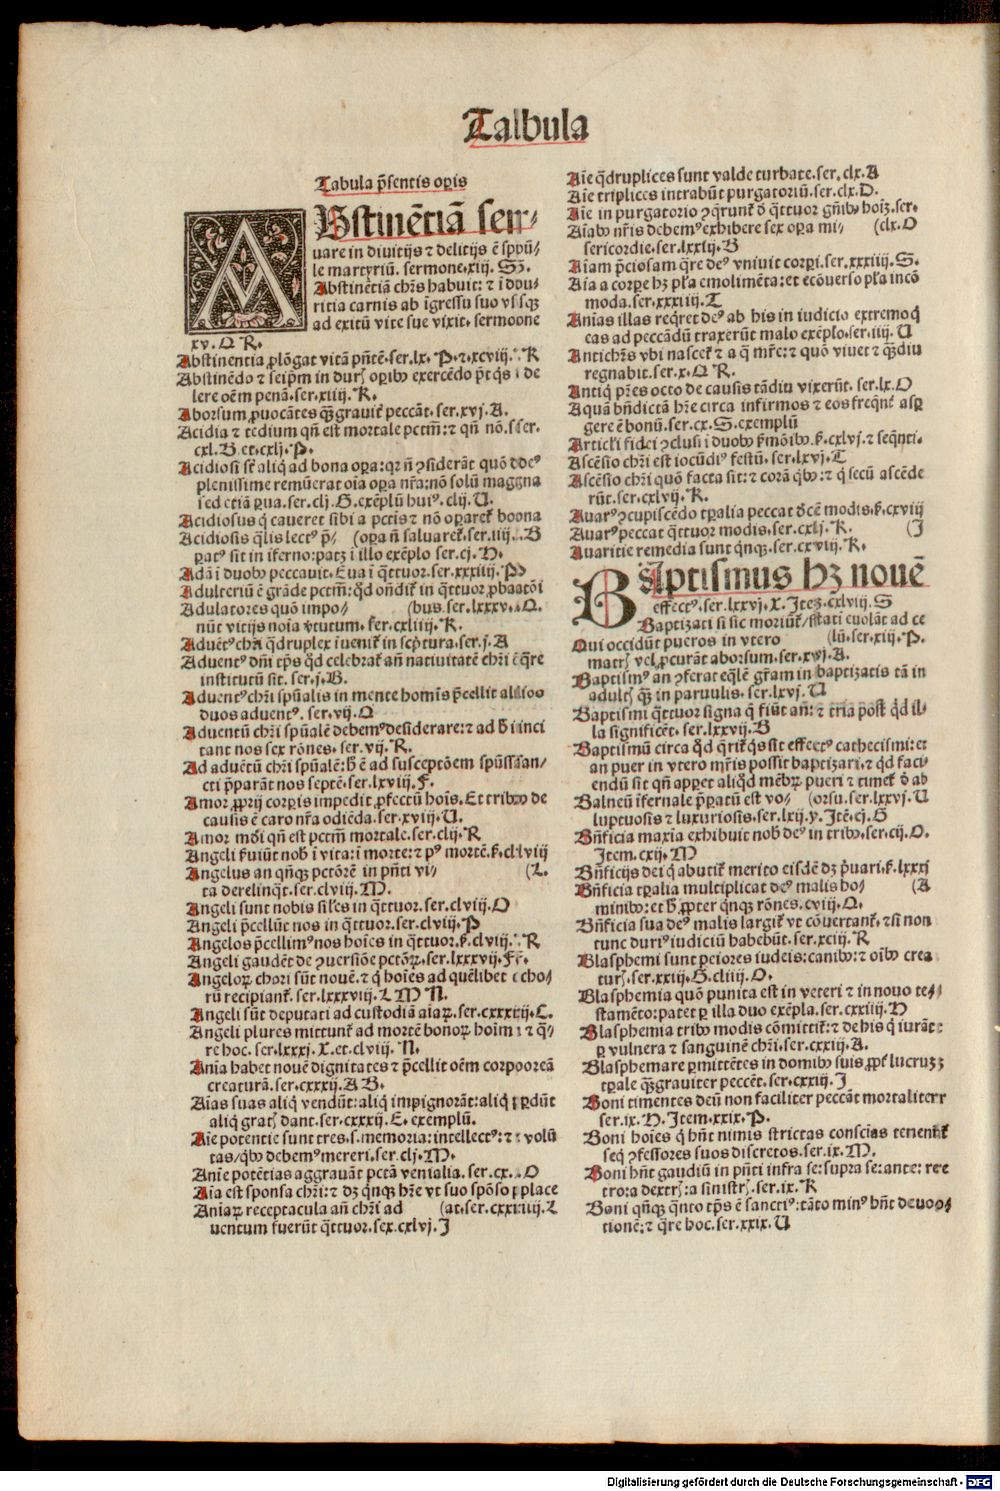 Talbula
Tabula p̃sentis oꝑis
ABstinẽtiã ser-
uare in diuitijs ⁊ delitijs ẽ spũ-
le martyriũ. sermone.xiij. S
Abstinẽtiã chr̃s habuit: ⁊ ĩ
ritia carnis ab ĩgressu suo vsqꝫ
ad exitũ vite sue vixit. sermoone
xv. Q R.
Abstinentia ꝓlõgat vitã pñtẽ.ser.lx. P.⁊.xcviij. R
Abstinẽdo ⁊ seip̃m in durꝭ oꝑibꝰ exercẽdo p̃t qs de
lere oẽm penã.ser.xiiij. R.
Aborsum ꝓuocãtes qꝫ grauit̃ peccãt. ser.xvj. A.
Acidia ⁊ tedium qñ est mortale pctm̃: ⁊ qñ nõ. ser.
cxl. B et.cxlj. P.
Acidiosi sũt aliq̃ ad bona oꝑa: qꝛ ñ ꝯsiderãt quõ deꝰ
plenissime remũerat oĩa oꝑa nr̃a: nõ solũ maggna
sed etiã ꝑua.ser.clj. G. exẽplũ huiꝰ. clij. U.
Acidiosus q̃ caueret sibi a pctis ⁊ nõ oꝑaret̃ boona
Acidiosis q̃lis lectꝰ p̃- (oꝑa ñ saluaret̃.ser.iiij. B
ꝑatꝰ sit in ĩferno: patꝫ ĩ illo exẽplo ser.cj. H.
Adã ĩ duobꝰ peccauit. Eua ĩ q̃ttuor. ser.xxxiiij. P
Adulteriũ ẽ grãde pctm̃: qd̃ oñdit̃ in q̃ttuor ꝓbaatõi
Adulatores quõ impo- (bus. ser.lxxxv. Q.
nũt vitijs noĩa ṽtutum. ser.cxliiij. R.
Aduẽtꝰ chr̃i q̃druplex ĩuenit̃ in scp̃tura.ser.j. A
Aduentꝰ dñi tp̃s qd̃ celebrat̃ añ natiuitatẽ chr̃i ẽ q̃re
institutũ sit. ser.j. B.
Aduentꝰ chr̃i spũalis in mente homĩs p̃cellit alioo
duos aduentꝰ. ser. vij. Q
Aduentũ chr̃i spũalẽ debemꝰ desiderare: ⁊ ad inci
tant nos sex rõnes. ser. vij. R.
Ad aduẽtũ chr̃i spũalẽ: ẽ ad susceptõem spũs san/
cti p̃parãt nos septẽ. ser.lxviij. F.
Amor ꝓprij corꝑis impedit ꝓfectũ hoĩs. Et tribꝰ de
causis ẽ caro nr̃a odiẽda. ser.xviij. U.
Amor mũdi qñ est pctm̃ mortale. ser.clij. R
Angeli ẽuiũt nob̃ ĩ vita: ĩ morte: ⁊ pꝰ mortẽ. cl.lviij
Angelus an qñqꝫ pctõrẽ in pñti vi- (L.
ta derelinq̃t.ser.clviij. M.
Angeli sunt nobis sil̃es in q̃ttuor. ser.clviij. O
Angeli p̃cellũt nos in q̃ttuor.ser.clviij. P
Angelos p̃cellimꝰ nos hoĩes in q̃ttuor. clviij. R
Angeli gaudẽt de ꝯuersiõe pctõꝝ. ser.lxxxvij. F.
Angeloꝝ chori sũt nouẽ. ⁊ q̃ hoĩes ad quẽlibet cho-
rũ recipiant̃. ser.lxxxviij. L M N.
Angeli sũt deputati ad custodiã aĩaꝝ. ser.cxxxiij. C.
Angeli plures mittunt̃ ad mortẽ bonoꝝ hoĩm ⁊ q̃-
re hoc. ser.lxxxj. X. et. clviij. N.
Anĩa habet nouẽ dignitates ⁊ p̃cellit oẽm corpooreã
creaturã. ser.cxxxij. A B.
Aĩas suas aliq̃ vendũt: aliq̃ impignorãt: aliq̃ ꝑdũt
aliq̃ gratꝭ dant. ser.cxxxij. E. exemplũ.
Aĩe potentie sunt tres.s. memoria: intellectꝰ: ⁊ volũ
tas/q̃bꝰ debemꝰ mereri. ser.clj. M.
Anĩe potẽtias aggrauãt pctã venialia. ser.cx. O
Aĩa est sponsa chr̃i: ⁊ dꝫ qñqꝫ hr̃e vt suo spõso place
Aniaꝝ receptacula añ chr̃i ad (at. ser.cxxxiiij. L
uentum fuerũt q̃ttuor. sex.cxlvj. J
Aĩe q̃druplices sunt valde turbate.ser.clx. A
Aĩe triplices intrabũt purgatoriũ.ser.clx. D.
Aĩe in purgatorio ꝯq̃runt̃ õ q̃ttuor gñibꝰ hoĩꝫ.ser.
Aĩabꝰ nr̃is debemꝰ exhibere sex oꝑa mi- (clx. O
sericordie.ser.lxxij. B
Aĩam p̃ciosam q̃re deꝰ vniuit corꝑi.ser.xxxiiij. S.
Aĩa a corꝑe hꝫ pl̃a emolimẽta: et ecõuerso pl̃a incõ
moda.ser.xxxiiij. T
Anias illas req̃ret deꝰ ab his in iudicio extremo q̃
eas ad peccãdũ traxerũt malo exẽplo.ser.iiij. U
Antichr̃s vbi nascet̃ ⁊ a q̃ mr̃e: ⁊ quõ viuet ⁊ q̃diu
regnabit. ser.x. Q R.
Antiq̃ pr̃es octo de causis tãdiu vixerũt. ser.lx. O
Aquã bñdictã hr̃e circa infirmos ⁊ eos freq̃nt̃ asꝑ
gere ẽ bonũ. ser.cx. S. exemplũ
Articli̇ fidei ꝯclusi ĩ duobꝰ sermõibꝰ. cxlvj. ⁊ seq̃nti.
Ascẽsio chr̃i est iocũdiꝰ festũ. ser.lxvj. T
Ascẽsio chr̃i quõ facta sit: ⁊ corã q̃bꝰ: ⁊ q̃ secũ ascẽde
rũt. ser.cxlvij. R.
Auarꝰ ꝯcupiscẽdo tꝑalia peccat modis. cxviij
Auarꝰ peccat q̃ttuor modis. ser.cxlj. R. (J
Auaritie remedia sunt q̃nqꝫ. ser.cxviij. R.
BAptismus hꝫ nouẽ
effectꝰ. ser.lxxvj. X. Jteꝫ.cxlviij. S
Baptizati si sic moriũt̃/statĩ euolãt ad ce
Qui occidũt pueros in vtero (lũ. ser.xiij. P.
matrꝭ vel ꝓcurãt aborsum. ser.xvj. A.
Baptismꝰ an ꝯferat eq̃lẽ gr̃am in baptizatis tã in
adultꝭ qꝫ in paruulis. ser.lxvj. U
Baptismi q̃ttuor signa q̃ fiũt añ: ⁊ tria post qd̃ il-
la significẽt. ser.lxxvij. B
Baptismũ circa qd̃ q̃rit̃ qs sit effectꝰ cathecismi: et
an puer in vtero mr̃is possit baptizari. ⁊ qd̃ faci-
endũ sit qñ apꝑet aliqd̃ mẽbꝝ pueri ⁊ timet̃ õ ab
Balneũ ĩfernale p̃ꝑatũ est vo- (orsu. ser.lxxvj. U
luptuosis ⁊ luxuriosis. ser.lxij. y. Jtẽ. cj. G
Bñficia maxia exhibuit nob̃ deꝰ in tribꝰ. ser.cij. O.
Jtem. cxij. M
Bñficijs dei q̃ abutit̃ merito eisdẽ dꝫ p̃uari. lxxxj
Bñficia tꝑalia multiplicat deꝰ malis ho- (A
minibꝰ: et ꝓpter q̃nqꝫ rõnes. cviij. Q.
Bñficia sua deꝰ malis largit̃ vt cõuertant̃. ⁊ si non
tunc duriꝰ iudiciũ habebũt. ser.xciij. R
Blasphemi sunt peiores iudeis: canibꝰ: ⁊ oĩbꝰ crea
turꝭ. ser.xxiij. G. cliiij. O.
Blasphemia quõ punita est in veteri ⁊ in nouo te-
stamẽto: patet ꝑ illa duo exẽpla. ser.cxxiiij. H
Blasphemia tribꝰ modis cõmittit̃: ⁊ de his q̃ iurãt
ꝑ vulnera ⁊ sanguinẽ chr̃i. ser.cxxiij. A.
Blasphemare ꝑmittẽtes in domibꝰ suis ꝓpt̃ lucruꝫ
tꝑale qꝫ grauiter peccẽt. ser.cxxiij. J
Boni timentes deũ non faciliter peccãt mortaliterr
ser.ix. H. Jtem.xxix. P.
Boni hoĩes q̃ hñt nimis strictas conscĩas tenent̃
seq̃ ꝯfessores suos discretos. ser.ix. M.
Boni hñt gaudiũ in pñti infra se: supra se: ante: re
tro: a dextrꝭ: a sinistrꝭ. ser.ix. R
Boni qñqꝫ q̃nto tp̃s ẽ sanctiꝰ: tãto minꝰ hñt deuoo-
tionẽ: ⁊ q̃re hoc. ser.xxix. U
Digitalisierung gefördert durch die Deutsche Forschungsgemeinschaft - DFG